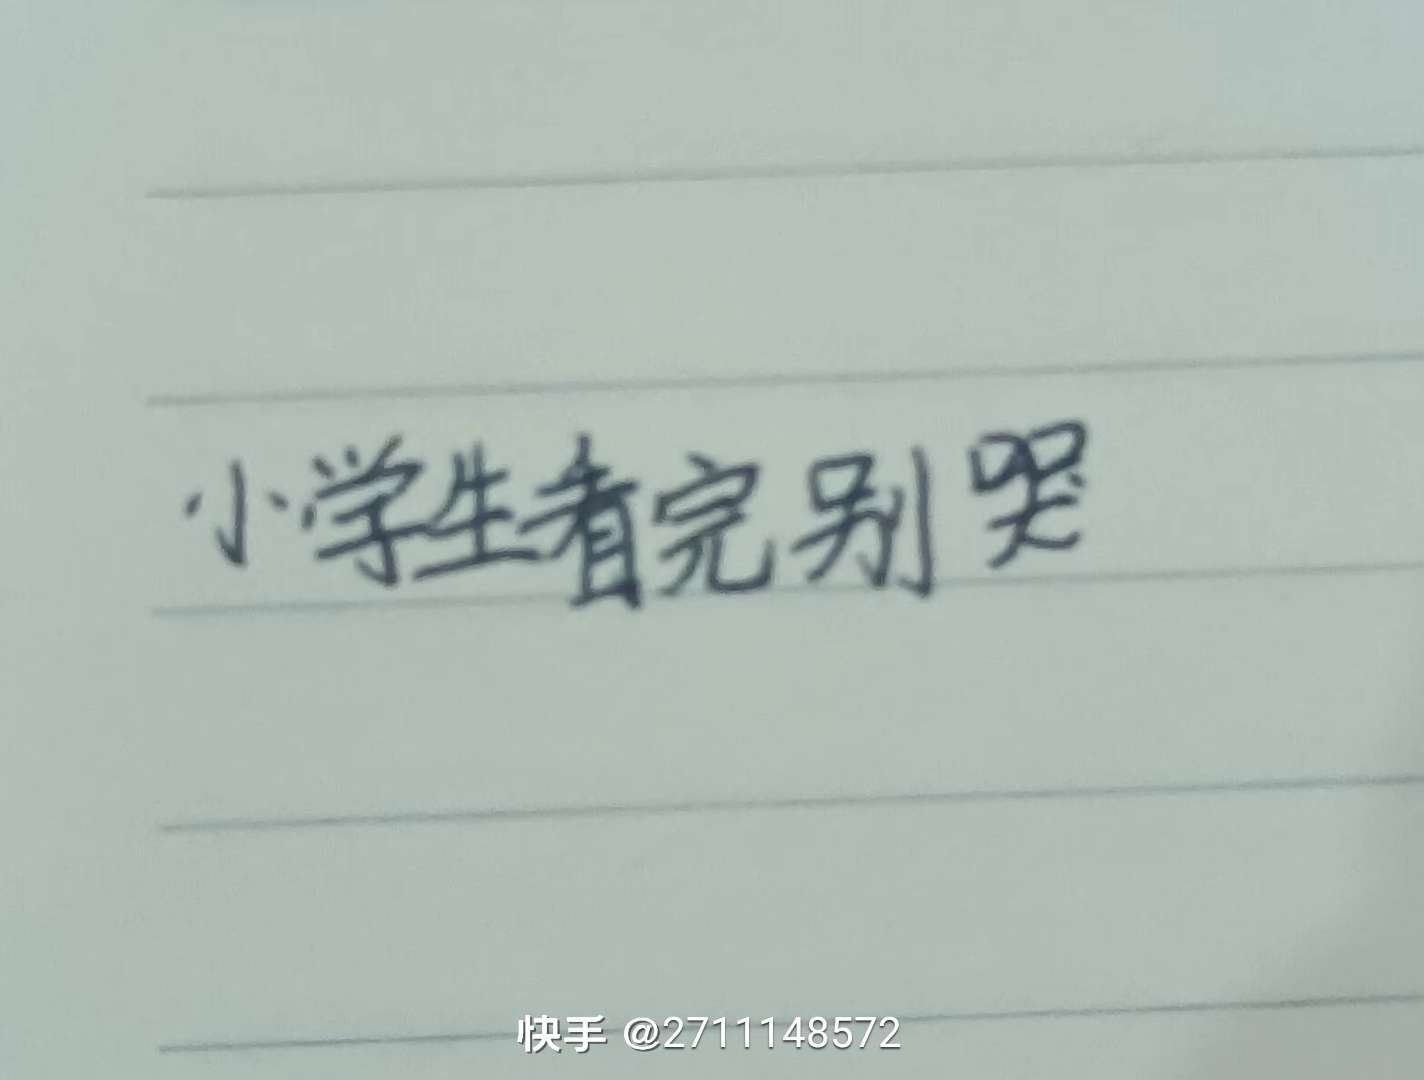 小学生看完别哭
快手 @2711148572